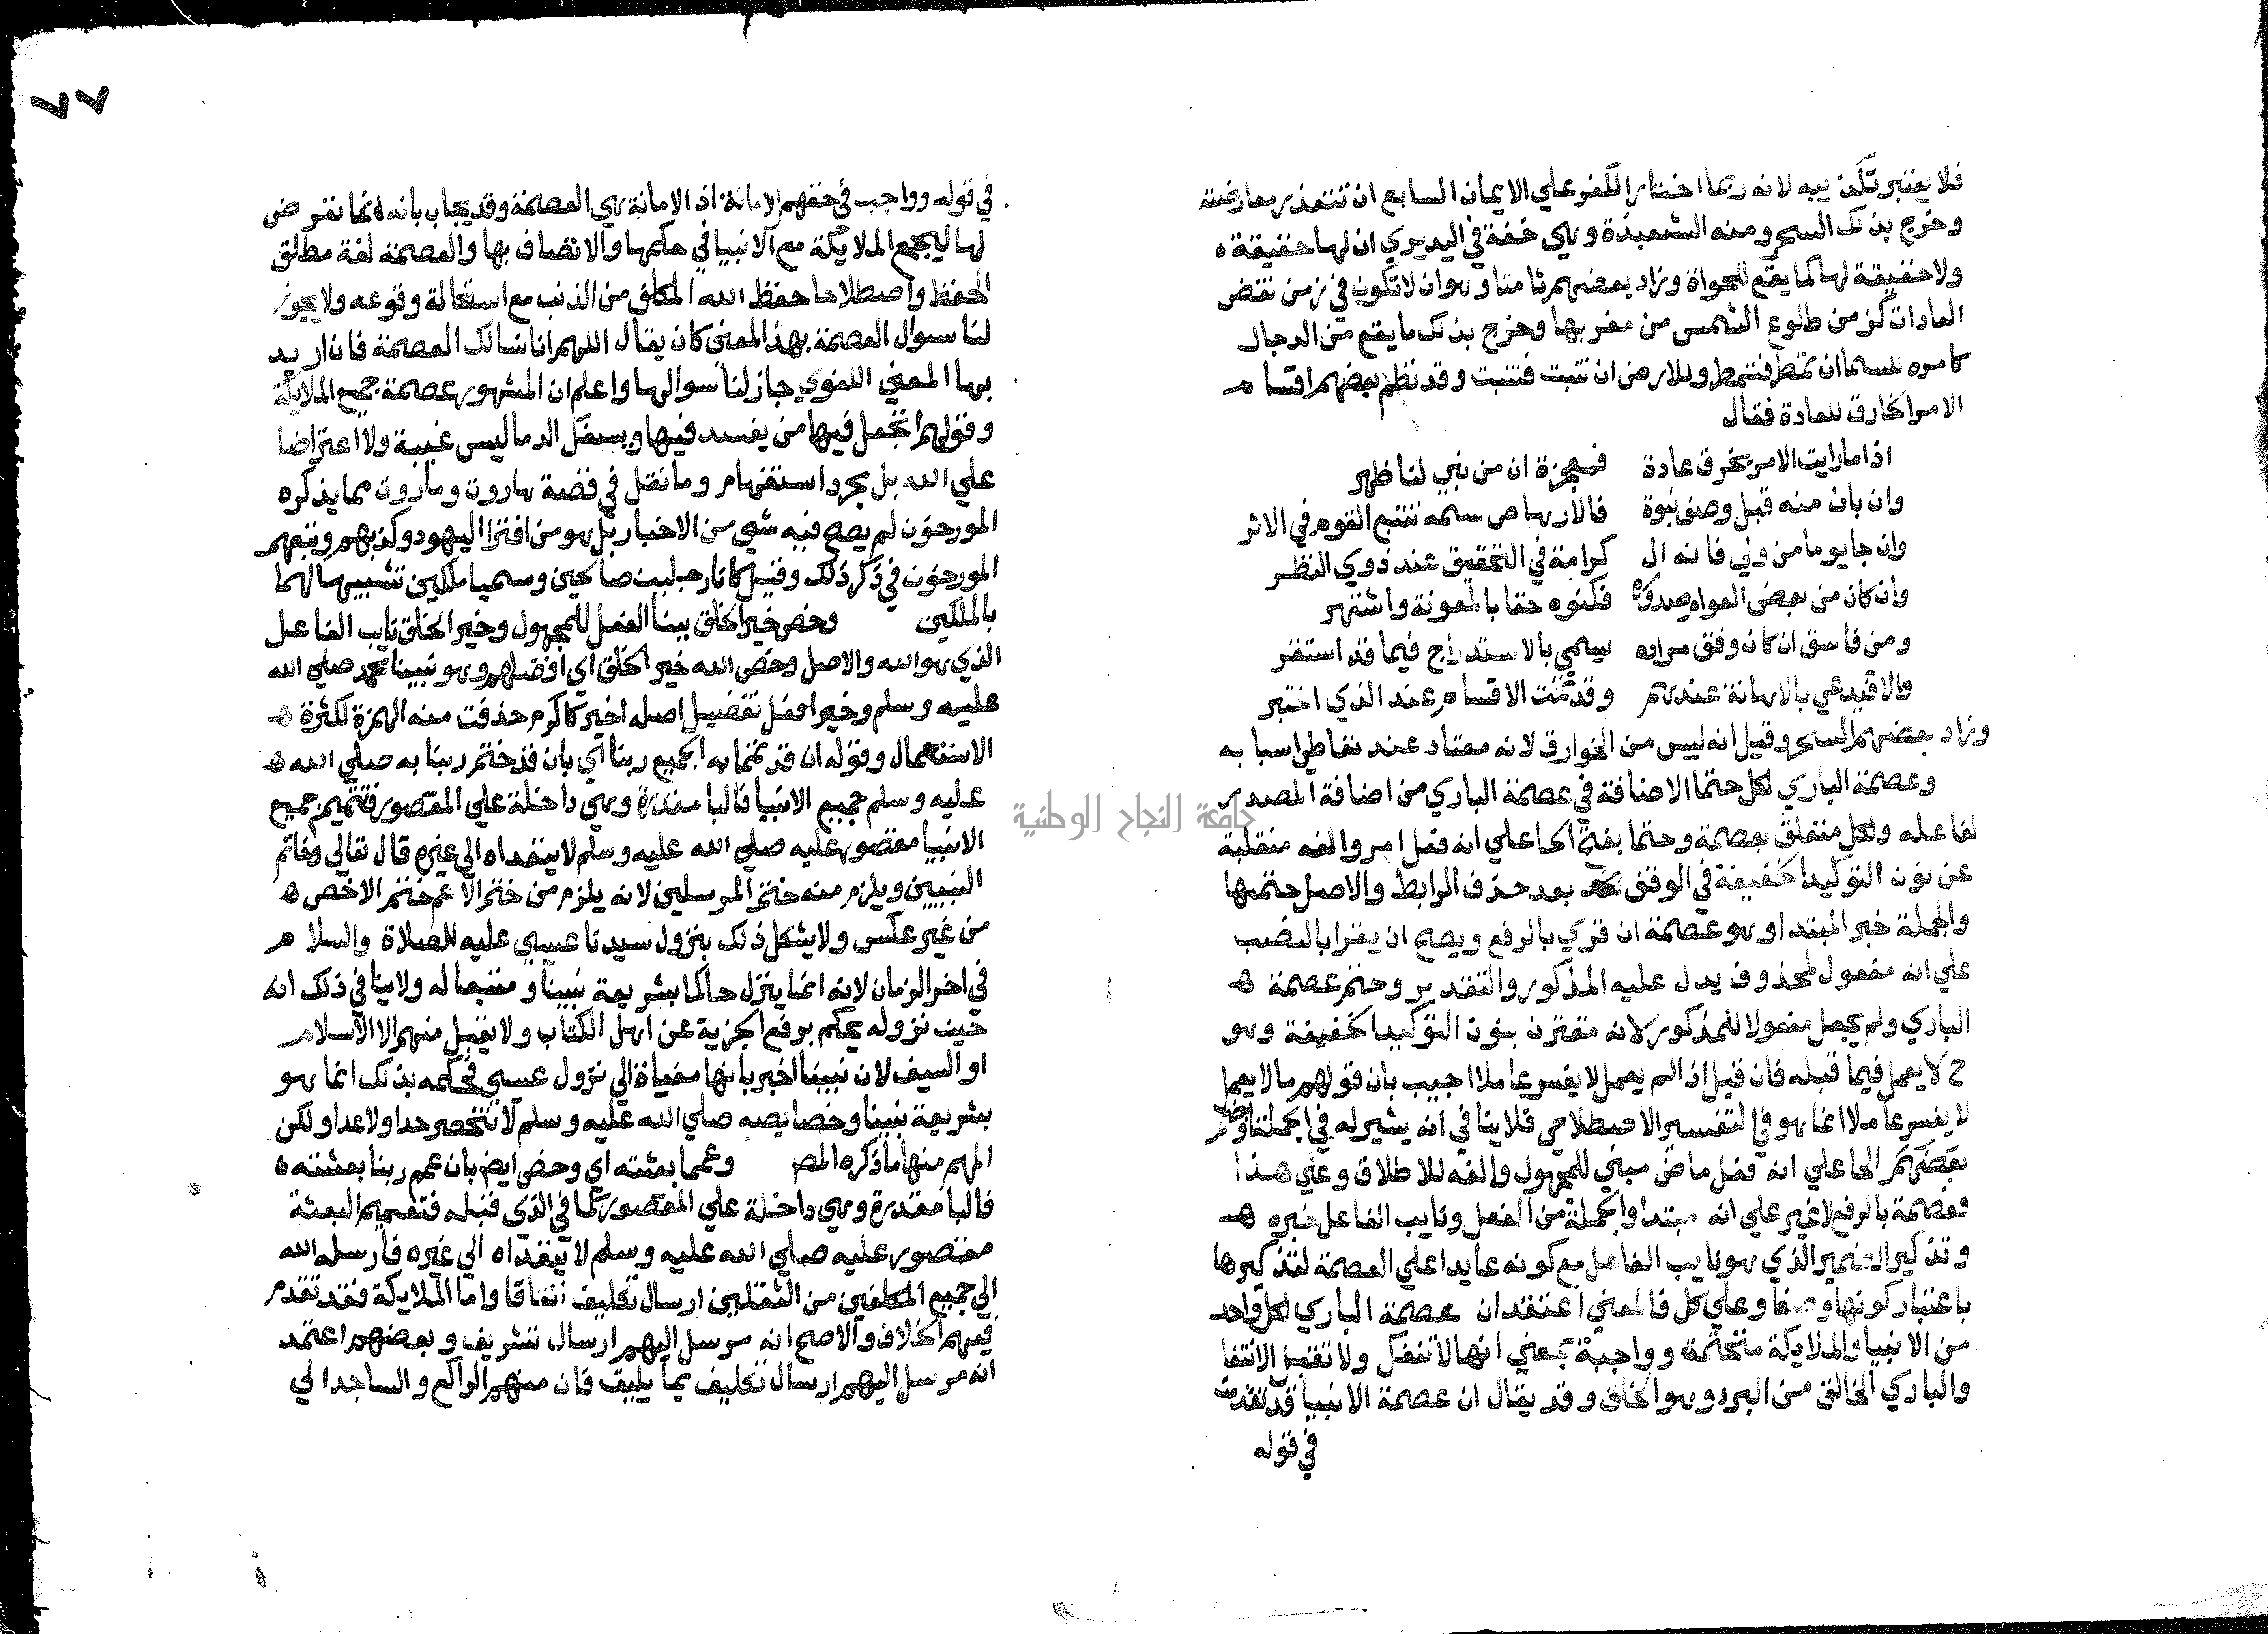 فلا يعتبر تكذيبه لانه ربما اختار الكفر علي الايمان السابع ان تتعذر معارضته
وخرج بذلك السحر ومنه الشعبذة وهي خفة في اليد يري ان لها حقيقة ه
ولا حقيقة لها كما يقع للحواة وزاد بعضهم ثامنا وهو ان لا تكون في زمن نقض
العادات كزمن طلوع الشمس من مغربها وخرج بذلك ما يقع من الدجال
كامره للسما ان تمطر فتمطر وللارض ان تنبت فتنبت وقد نظم بعضهم اقسام
الامر الخارق للعادة فقال
اذا ما رايت الامر يخرق عادة فمعجزة ان من نبي لنا ظهر
وان بان منه قبل وصف نبوة فالارهاص سمه تتبع القوم في الاثر
وان جا يوما من ولي فانه ال كرامة في التحقيق عند ذوي النظر
وان كان من بعض العوام صدوره فكنوه حقا بالمعونة واشتهر
ومن فاسق ان كان وفق مراده يسمي بالاستدراج فيما قد استقر
والا فيدعي بالاهانة عندهم وقد تمت الاقسام عند الذي اختبر
وزاد بعضهم السحر وقيل انه ليس من الخوارق لانه معتاد عند تعاطي اسبابه
وعصمة الباري لكل حتما الاضافة في عصمة الباري من اضافة المصدر
لفاعله ولكل متعلق بعصمة وحتما بفتح الحا علي انه فعل امر والفه منقلبة
عن نون التوكيد الخفيفة في الوقف بعد حذف الرابط والاصل حتمنها
والجملة خبر المبتدا وهو عصمة ان قري بالرفع ويصح ان يقرا بالنصب
علي انه مفعول لمحذوف يدل عليه المذكور والتقدير وحتم عصمة ه
الباري ولم يجعل مفعولا للمذكور لانه مقترن بنون التوكيد الخفيفة وهو
ح لا يعمل فيما قبله فان قيل اذا لم يعمل لا يفسر عاملا اجيب بان قولهم ما لا يعمل
لا يفسر عاملا انما هو في التفسير الاصطلاحي فلا ينافي انه يشير له في الجملة وضم
بعضهم الحا علي انه فعل ماض مبني للمجهول والفه للاطلاق وعلي هذا
فعصمة بالرفع لا غير علي انه مبتدا والجملة من الفعل ونايب الفاعل خبره ه
وتذكير الضمير الذي هو نايب الفاعل مع كونه عايدا علي العصمة لتذكيرها
باعتبار كونها وصفا وعلي كل فالمعني اعتقد ان عصمة الباري لكل واحد
من الانبيا والملايكة متحتمة وواجبة بمعني انها لا تنفك ولا تقبل الانتفا
والباري الخالق من البرء وهو الخلق وقد يقال ان عصمة الانبيا قد تقدمت
في قوله
٧٧
في قوله وواجب في حقهم الامانة اذ الامانة هي العصمة وقد يجاب بانه انما تعرض
لها ليجمع الملايكة مع الانبيا في حكمها والاتصاف بها والعصمة لغة مطلق
الحفظ واصطلاحا حفظ الله المكلف من الذنب مع استحالة وقوعه ولا يجوز
لنا سوال العصمة بهذا المعني كان يقال اللهم انا نسالك العصمة فان اريد
بها المعني اللغوي جاز لنا سوالها واعلم ان المشهور عصمة جميع الملايكة
وقولهم اتجعل فيها من يفسد فيها ويسفك الدما ليس غيبة ولا اعتراضا
علي الله بل مجرد استفهام وما نقل في قصة هاروت وماروت مما يذكره
المورخون لم يصح فيه شي من الاخبار بل هو من افترا اليهود وكذبهم وتبعهم
المورخون في ذكر ذلك وقيل كانا رجلين صالحين وسميا ملكين تشبيها لهما
بالملكين وخص خير الخلق ببنا الفعل للمجهول وخير الخلق نايب الفاعل
الذي هو الله والاصل وخص الله خير الخلق اي افضلهم وهو نبينا محمد صلي الله
عليه وسلم وخير افعل تفضيل اصله اخير كاكرم حذفت منه الهمزة لكثرة ه
الاستعمال وقوله ان قد تمما به الجميع ربنا اي بان قد ختم ربنا به صلي الله ه
عليه وسلم جميع الانبيا فالبا مقدرة وهي داخلة علي المقصور فتتميم جميع
الانبيا مقصور عليه صلي الله عليه وسلم لا يتعداه الي غيره قال تعالي وخاتم
النبيين ويلزم منه ختم المرسلين لانه يلزم من ختم الاعم ختم الاخص ه
من غير عكس ولا يشكل ذلك بنزول سيدنا عيسي عليه الصلاة والسلام
في اخر الزمان لانه انما ينزل حاكما بشريعة نبينا ومتبعا له ولا ينافي ذلك انه
حين نزوله يحكم برفع الجزية عن اهل الكتاب ولا يقبل منهم الا الاسلام
او السيف لان نبينا اخبر بانها مغياة الي نزول عيسي فحكمه بذلك انما هو
بشريعة نبينا وخصايصه صلي الله عليه وسلم لا تنحصر حدا ولا عدا ولكن
المهم منها ما ذكره المص وعمما بعثته اي وخص ايض بان عمم ربنا بعثته ه
فالبا مقدرة وهي داخلة علي المقصور كما في الذي قبله فتعميم البعثة
مقصور عليه صلي الله عليه وسلم لا يتعداه الي غيره فارسله الله
الي جميع المكلفين من الثقلين ارسال تكليف اتفاقا واما الملايكة فقد تقدم
فيهم الخلاف والاصح انه مرسل اليهم ارسال تشريف وبعضهم اعتمد
انه مرسل اليهم ارسال تكليف بما يليق فان منهم الراكع والساجد الي
جامعة النجاح الوطنية